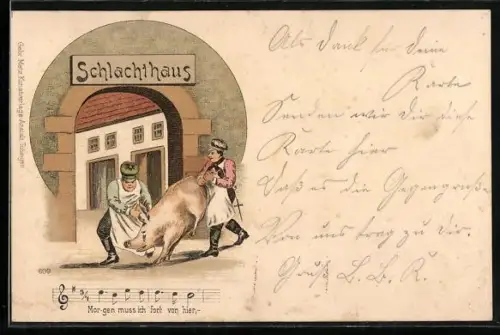 Schlachthaus
Gebr. Metz Kunstverlags-Anstalt, Tübingen
600
Mor-gen muss ich fort von hier,-
Als Dank für deine
Karte
Senden wir dir diese
Karte hier
Daß es die Gegengrüße
Von uns trag zu dir.
Gruß B. B. K.